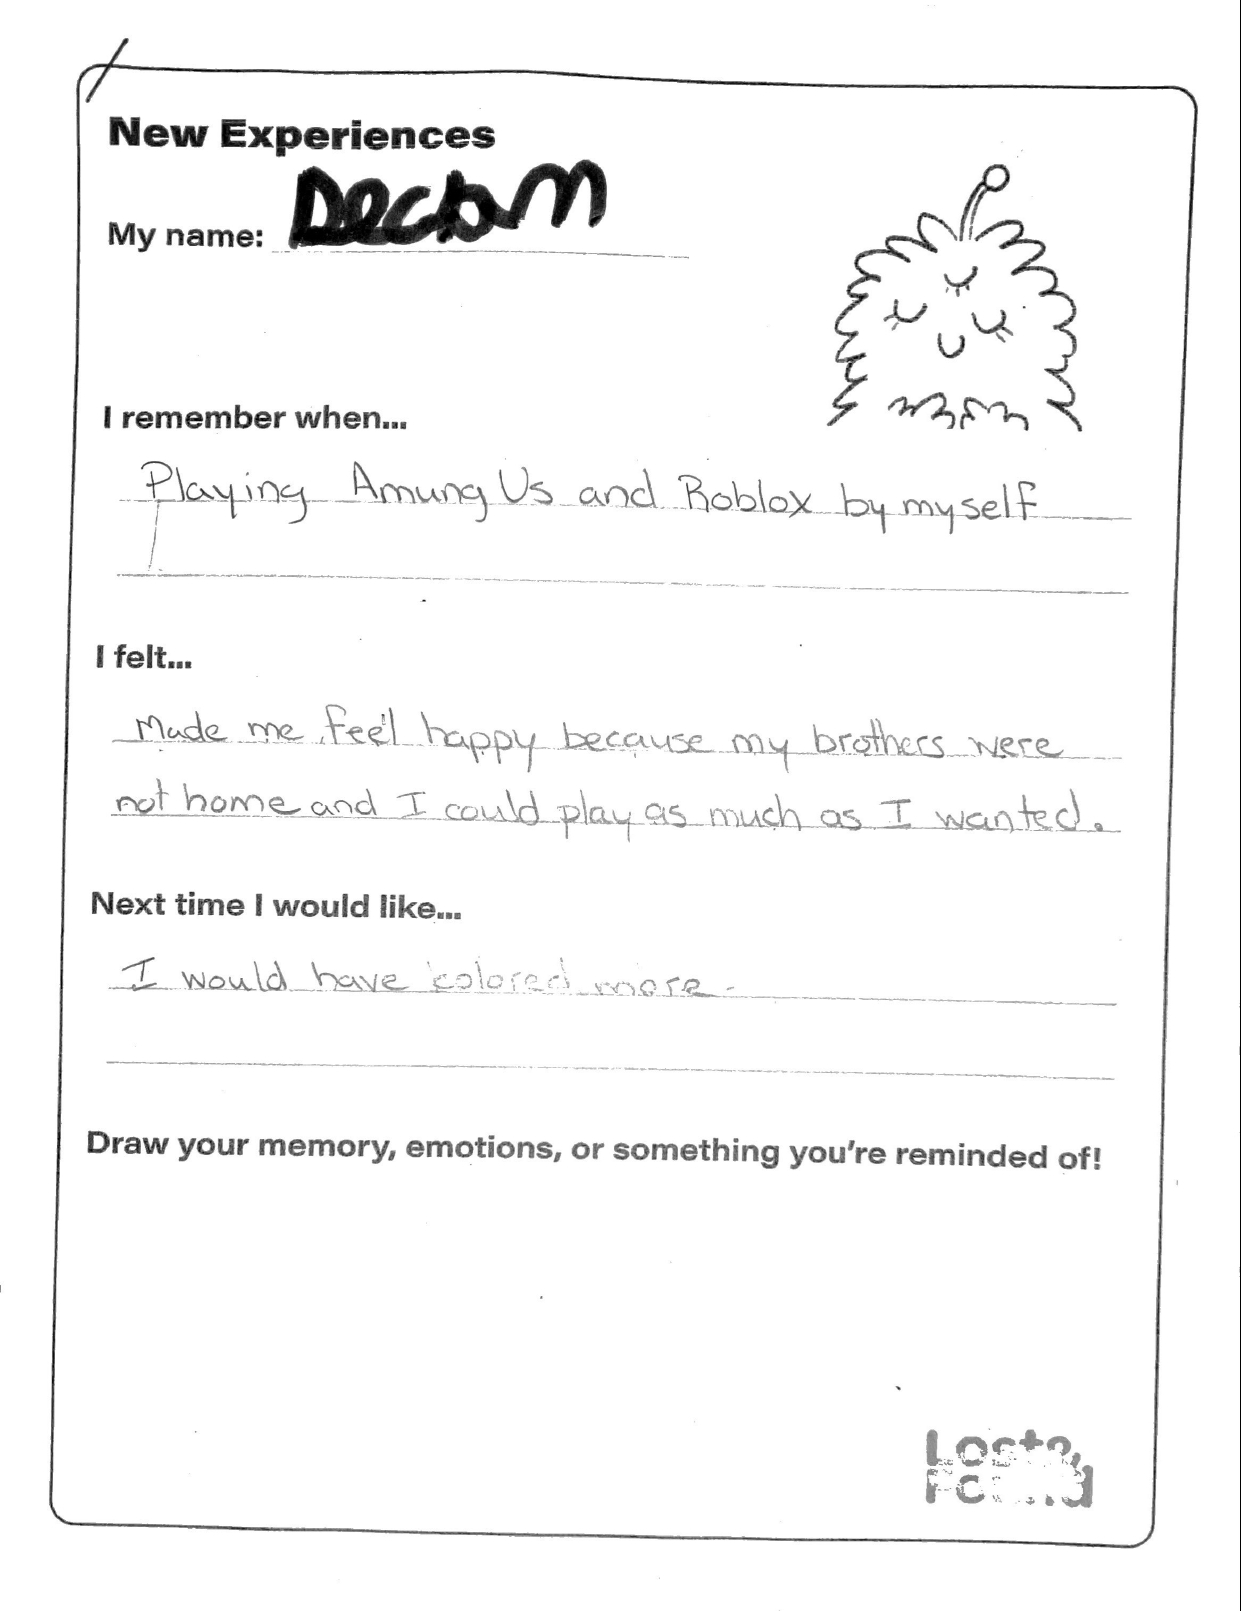 New Experiences
My name: Declan
I remember when...
Playing Amung Us and Roblox by myself
I felt...
Made me feel happy because my brothers were
not home and I could play as much as I wanted.
Next time I would like...
I would have colored more.
Draw your memory, emotions, or something you're reminded of!
Lost &
Found